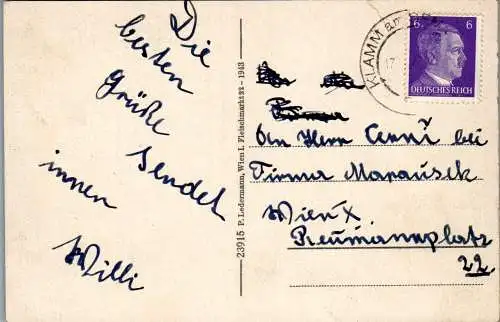 Die
besten
Grüße
sendet
innen
Willi
23915 P. Ledermann, Wien I. Fleischmarkt 22 - 1943
KLAMM a.m
6 6
DEUTSCHES REICH
An Herr Cerni bei
Firma Marausek
Wien X
Reumannplatz
22